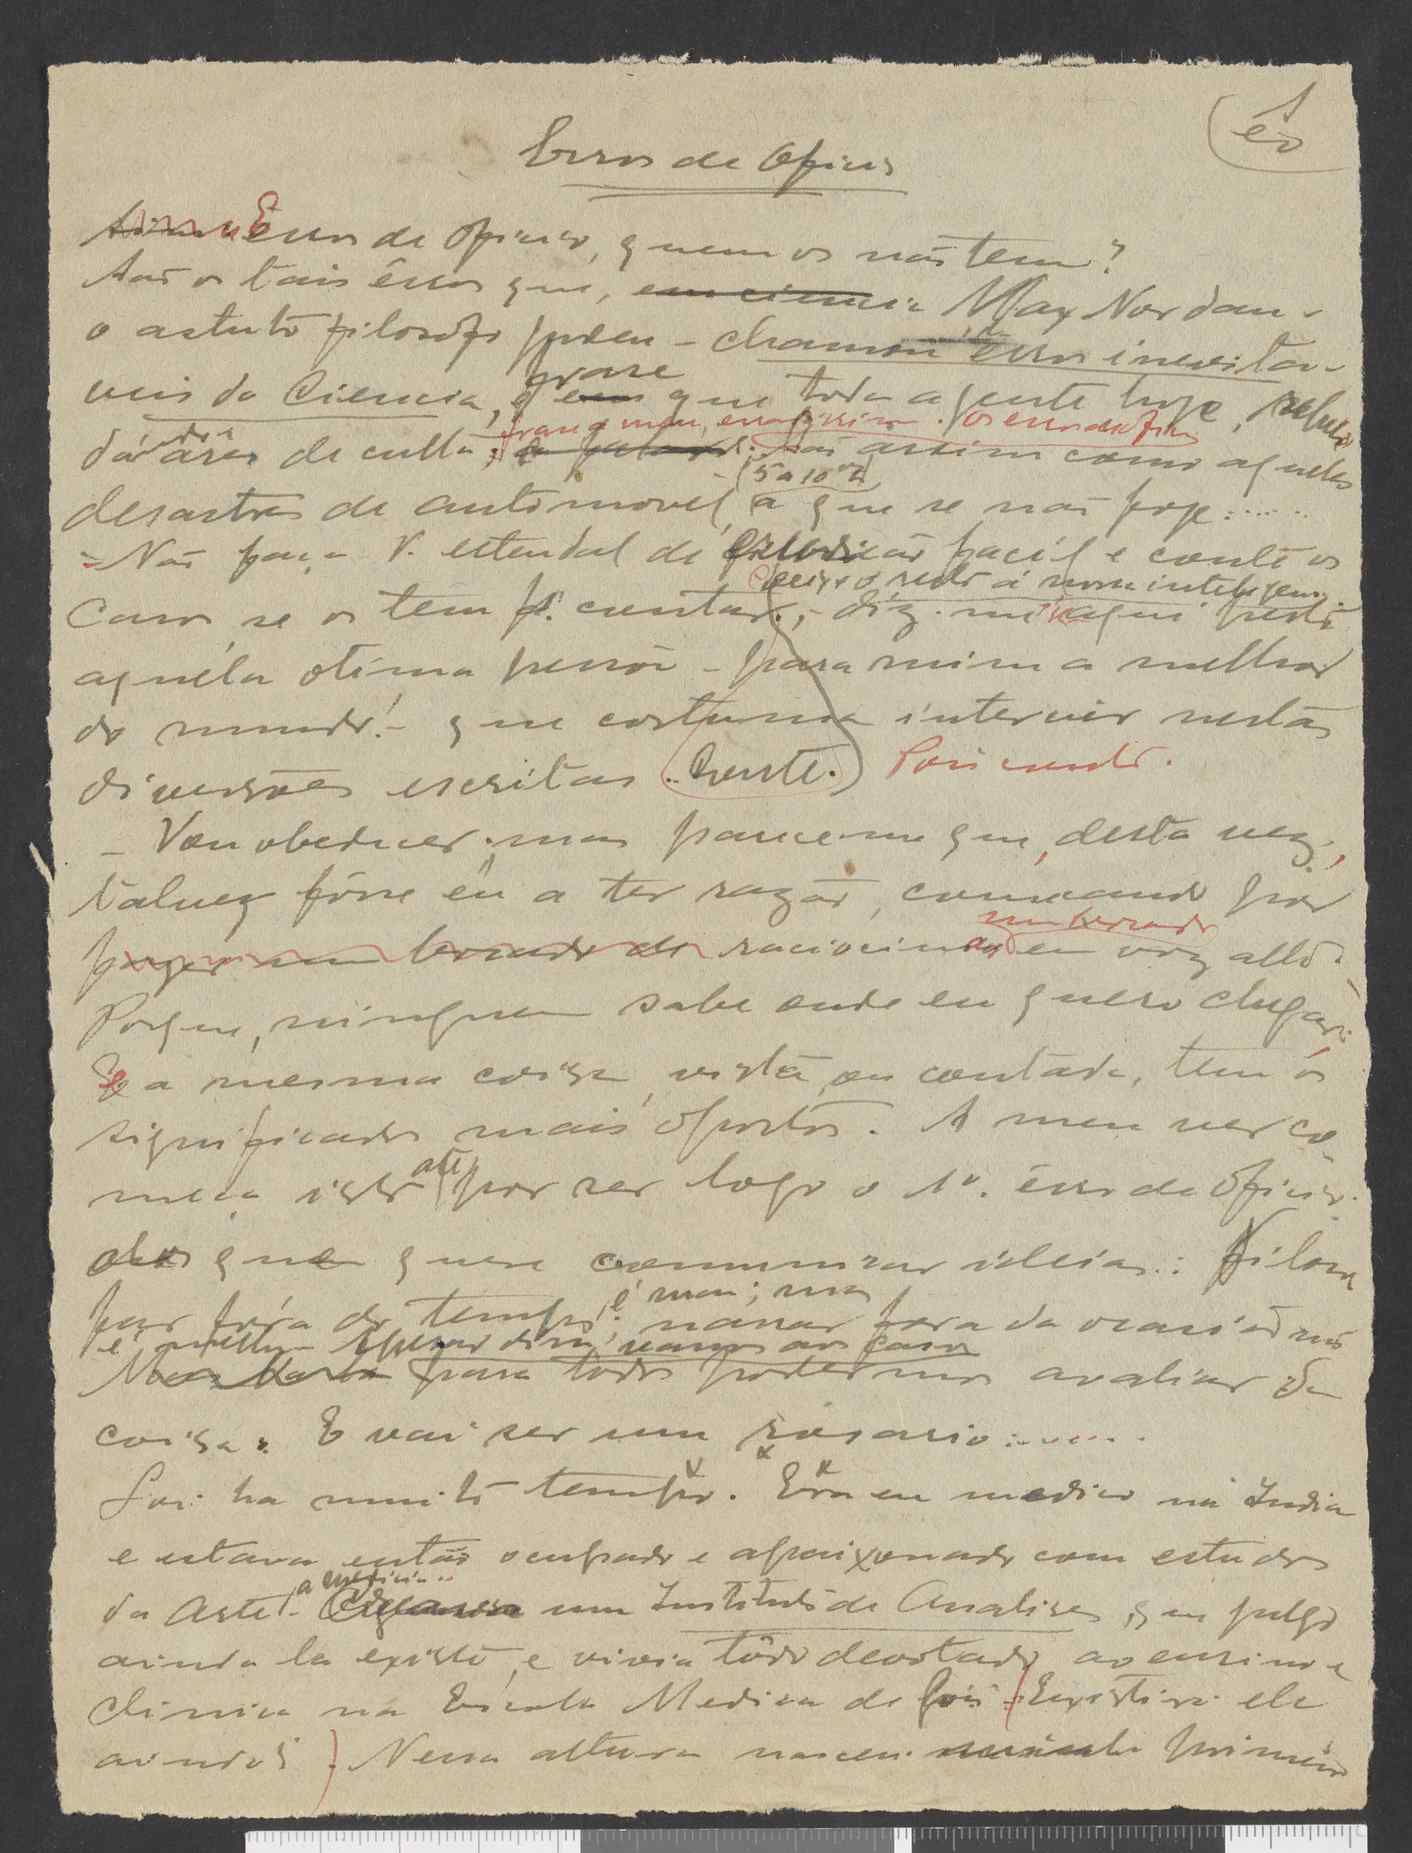 1
Erros de Oficio
Erros de Oficio, quem os não tem?
São os tais êrros que, Max Nordau -
o astuto filosofo judeu - chamou êrros inevita-
veis da Ciencia, frase que toda a gente hoje,
de culta, os erros de oficio
são assim como aqueles
(5 a 10
desastres de automovel, a que se não foge......
- Não faça V. estendal de erudição facil e conte os
deixe o resto á nossa inteligencia
casos, se os tem p.ª contar, - diz-me aqui perto
aquéla otima pessôa - para mim a melhor
do mundo! - que costuma intervir nestas
diversões escritas. Conte. Pois conto.
- Vou obedecer; mas parece-me que, desta vez,
talvez fôsse eu a ter razão, começando por
um bocado
fazer um bocado de raciocinio em voz alta.
Porque, ninguem sabe onde eu quero chegar.
E a mesma coisa, vista ou contada, tem os
significados mais opostos. A meu ver co-
meça isso até por ser logo o 1º. êrro de Oficio
dos que quere comunicar ideias: Filoso-
far fóra do tempo, é mau; mas narrar fora da ocasião não
é
vamos aos casos
para todos podermos avaliar da
coisa. E vai ser um rosario......
Foi ha muito tempo. Era eu medico na India
e estava então ocupado e apaixonado com estudos
da Arte
um Instituto de Analises, que julgo
ainda la existe, e vivia tôdo devotado ao ensino e
clinica na Escola Medica de Goa. (Existira ele
ainda?) Nessa altura nasceu primeiro